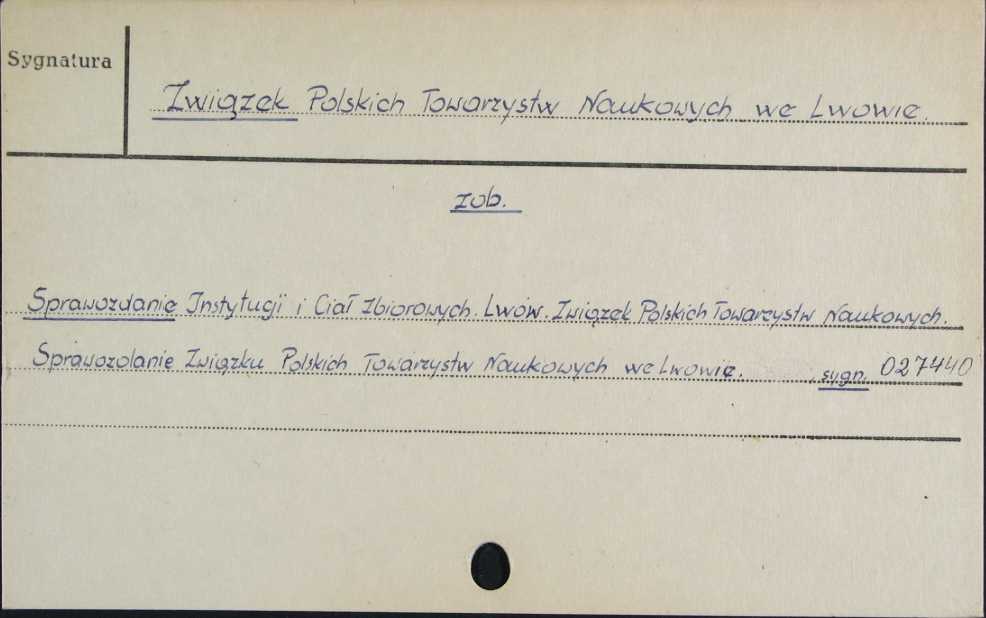 Sygnatura
Związek Polskich Towarzystw Naukowych we Lwowie.
zob.
Sprawozdanie Instytucji i Ciał Zbiorowych. Lwów. Związek Polskich Towarzystw Naukowych.
Sprawozdanie Związku Polskich Towarzystw Naukowych we Lwowie. sygn. 027440